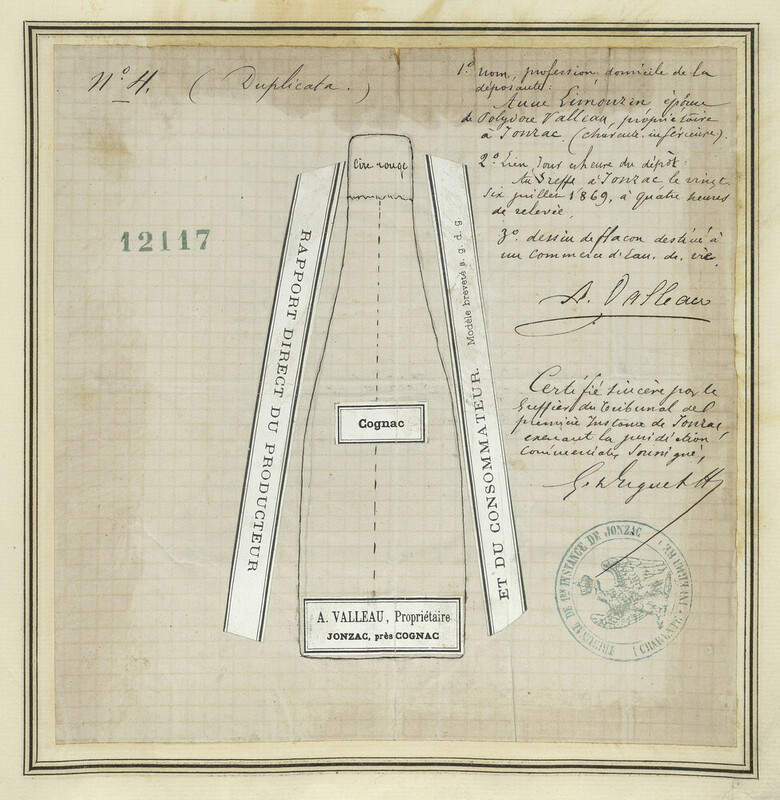 N° 4. (Duplicata.)
1° nom, profession domicile de la
déposante:
Anne Limouzin épouse
de Polydore Valleau, propriétaire
à Jonzac. (charente inférieure).
2° Lieu, Jour et heure du dépôt:
Au Greffe d'Jonzac le vingt
six juillet 1869, à quatre heures
de relevée.
3° dessin de flacon destiné à
un commerce d'Eau. de. vie.
A. Valleau
12117
Cire rouge
RAPPORT DIRECT DU PRODUCTEUR
ET DU CONSOMMATEUR. Modèle breveté s. g. d. g.
Cognac
A. VALLEAU, Propriétaire
JONZAC, près COGNAC
Certifié sincère par le
Greffier du Tribunal de
première Instance de Jonzac,
exerçant la juridiction
Commerciale, soussigné,
TRIBUNAL DE 1RE INSTANCE DE JONZAC